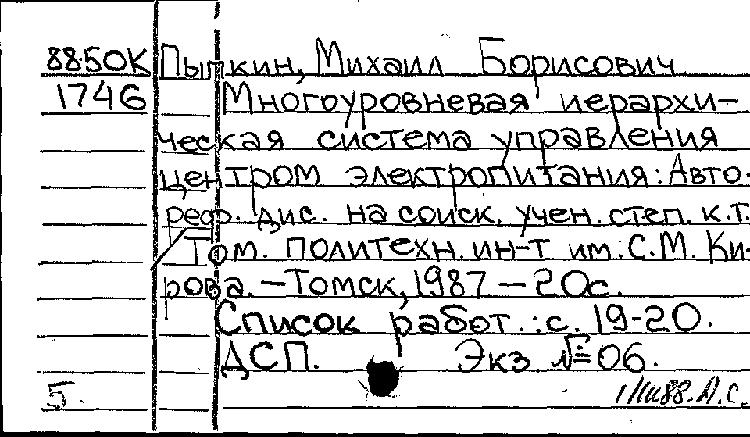 88-50К Пылкин, Михаил Борисович
1746 Многоуровневая иерархи-
ческая система управления
центром электропитания: Авто-
реф. дис. на соиск. учен. степ. к.т.
/Том. политехн. ин-т им. С.М. Ки-
рова. – Томск, 1987 – 20с.
Список работ.: с. 19-20.
ДСП. Экз №06.
5.